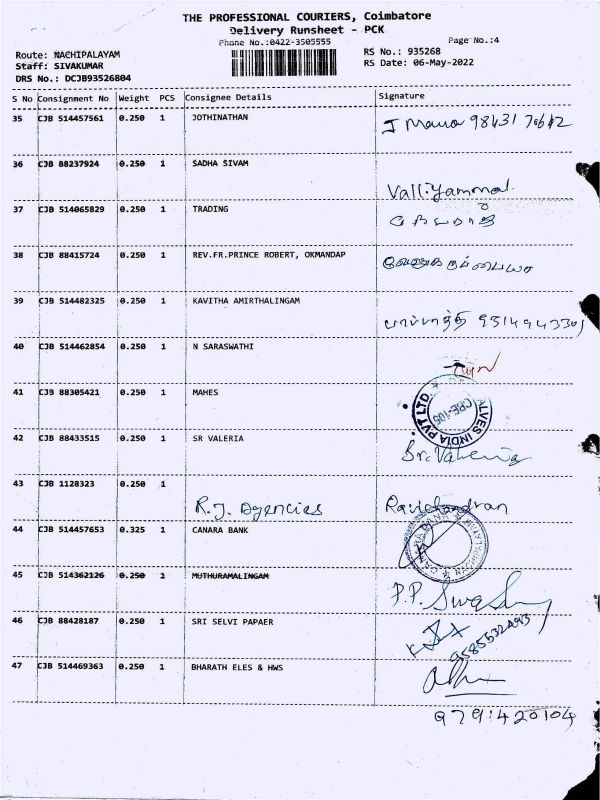 THE PROFESSIONAL COURIERS, Coimbatore
Delivery Runsheet - PCK
Phone No.:0422-3505555
Page No.:4
Route: NACHIPALAYAM
Staff: SIVAKUMAR
DRS No.: DCJB93526804
RS No.: 935268
RS Date: 06-May-2022
S No Consignment No Weight PCS Consignee Details Signature
35 CJB 514457561 0.250 1 JOTHINATHAN
36 CJB 88237924 0.250 1 SADHA SIVAM
Valliyammal
37 CJB 514065829 0.250 1 TRADING
38 CJB 88415724 0.250 1 REV.FR.PRINCE ROBERT, OKMANDAP
39 CJB 514482325 0.250 1 KAVITHA AMIRTHALINGAM
40 CJB 514462854 0.250 1 N SARASWATHI
41 CJB 88305421 0.250 1 MAHES
INDIA PVT LTD
CBE-105
42 CJB 88433515 0.250 1 SR VALERIA
Sr. Valeria
43 CJB 1128323 0.250 1 R.J. Agencies Ravichandran
44 CJB 514457653 0.325 1 CANARA BANK
CANARA BANK
45 CJB 514362126 0.250 1 MUTHURAMALINGAM
46 CJB 88428187 0.250 1 SRI SELVI PAPAER
47 CJB 514469363 0.250 1 BHARATH ELES & HWS